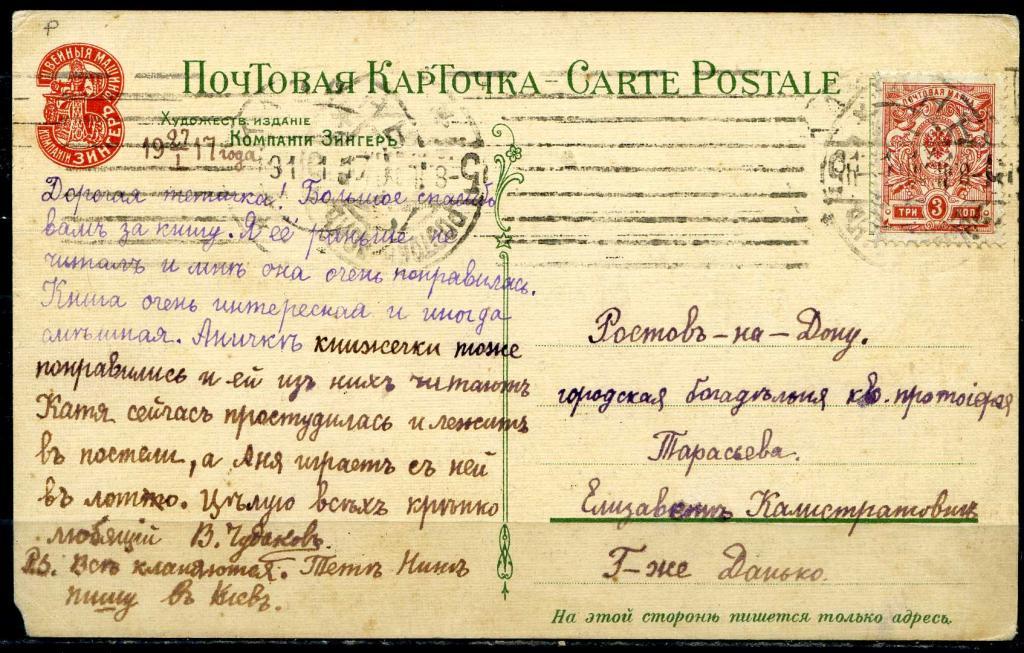 ШВЕЙНЫЯ МАШИНЫ
КОМПАНІИ ЗИНГЕРЪ
ПОЧТОВАЯ КАРТОЧКА – CARTE POSTALE
Художеств. издание
Компаніи Зингеръ
19 27/I 17 года
ПОЧТОВАЯ МАРКА
ТРИ 3 КОП
Дорогая тетичка! Большое спасибо
вамъ за книгу. Я её раньше не
читалъ и мнѣ она очень понравилась.
Книга очень интересная и иногда
смѣшная. Аничкѣ книжечки тоже
понравились и ей изъ нихъ читаютъ
Катя сейчасъ простудилась и лежитъ
въ постели, а Аня играетъ съ ней
въ лотто. Цѣлую всѣхъ крѣпко
любящій В. Чубаковъ.
P.S. Всѣ кланяются. Тетѣ Нинѣ
пишу въ Кіевъ.
Ростовъ-на-Дону.
городская богадѣльня кв. протоіерея
Тарасьева.
Елизаветѣ Калистратовнѣ
Г-же Данько.
На этой сторонѣ пишется только адресъ.